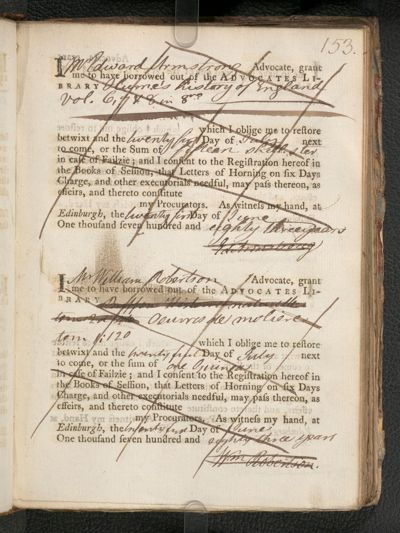 153.
I Mr Edward Armstrong Advocate, grant
me to have borrowed out of the ADVOCATES LI-
BRARY Hume's history of England
vol. 6, 7 & 8 in 8vo
which I oblige me to restore
betwixt and the twenty first Day of July next
to come, or the Sum of fifteen shillings
in case of Failzie; and I consent to the Registration hereof in
the Books of Session, that Letters of Horning on six Days
Charge, and other executorials needful, may pass thereon, as
effeirs, and thereto constitute
my Procurators. As witness my hand, at
Edinburgh, the twenty first Day of June
One thousand seven hundred and eighty three years
I Mr William Robertson Advocate, grant
me to have borrowed out of the ADVOCATES LI-
BRARY
Oeuvres de moliere
tom 4: 120
which I oblige me to restore
betwixt and the twenty first Day of July next
to come, or the sum of one Guinea
in case of Failzie; and I consent to the Registration hereof in
the Books of Session, that Letters of Horning on six Days
Charge, and other executorials needful, may pass thereon, as
effeirs, and thereto constitute
my Procurators. As witness my hand, at
Edinburgh, the twenty first Day of June
One thousand seven hundred and eighty three years
Wm Robertson.